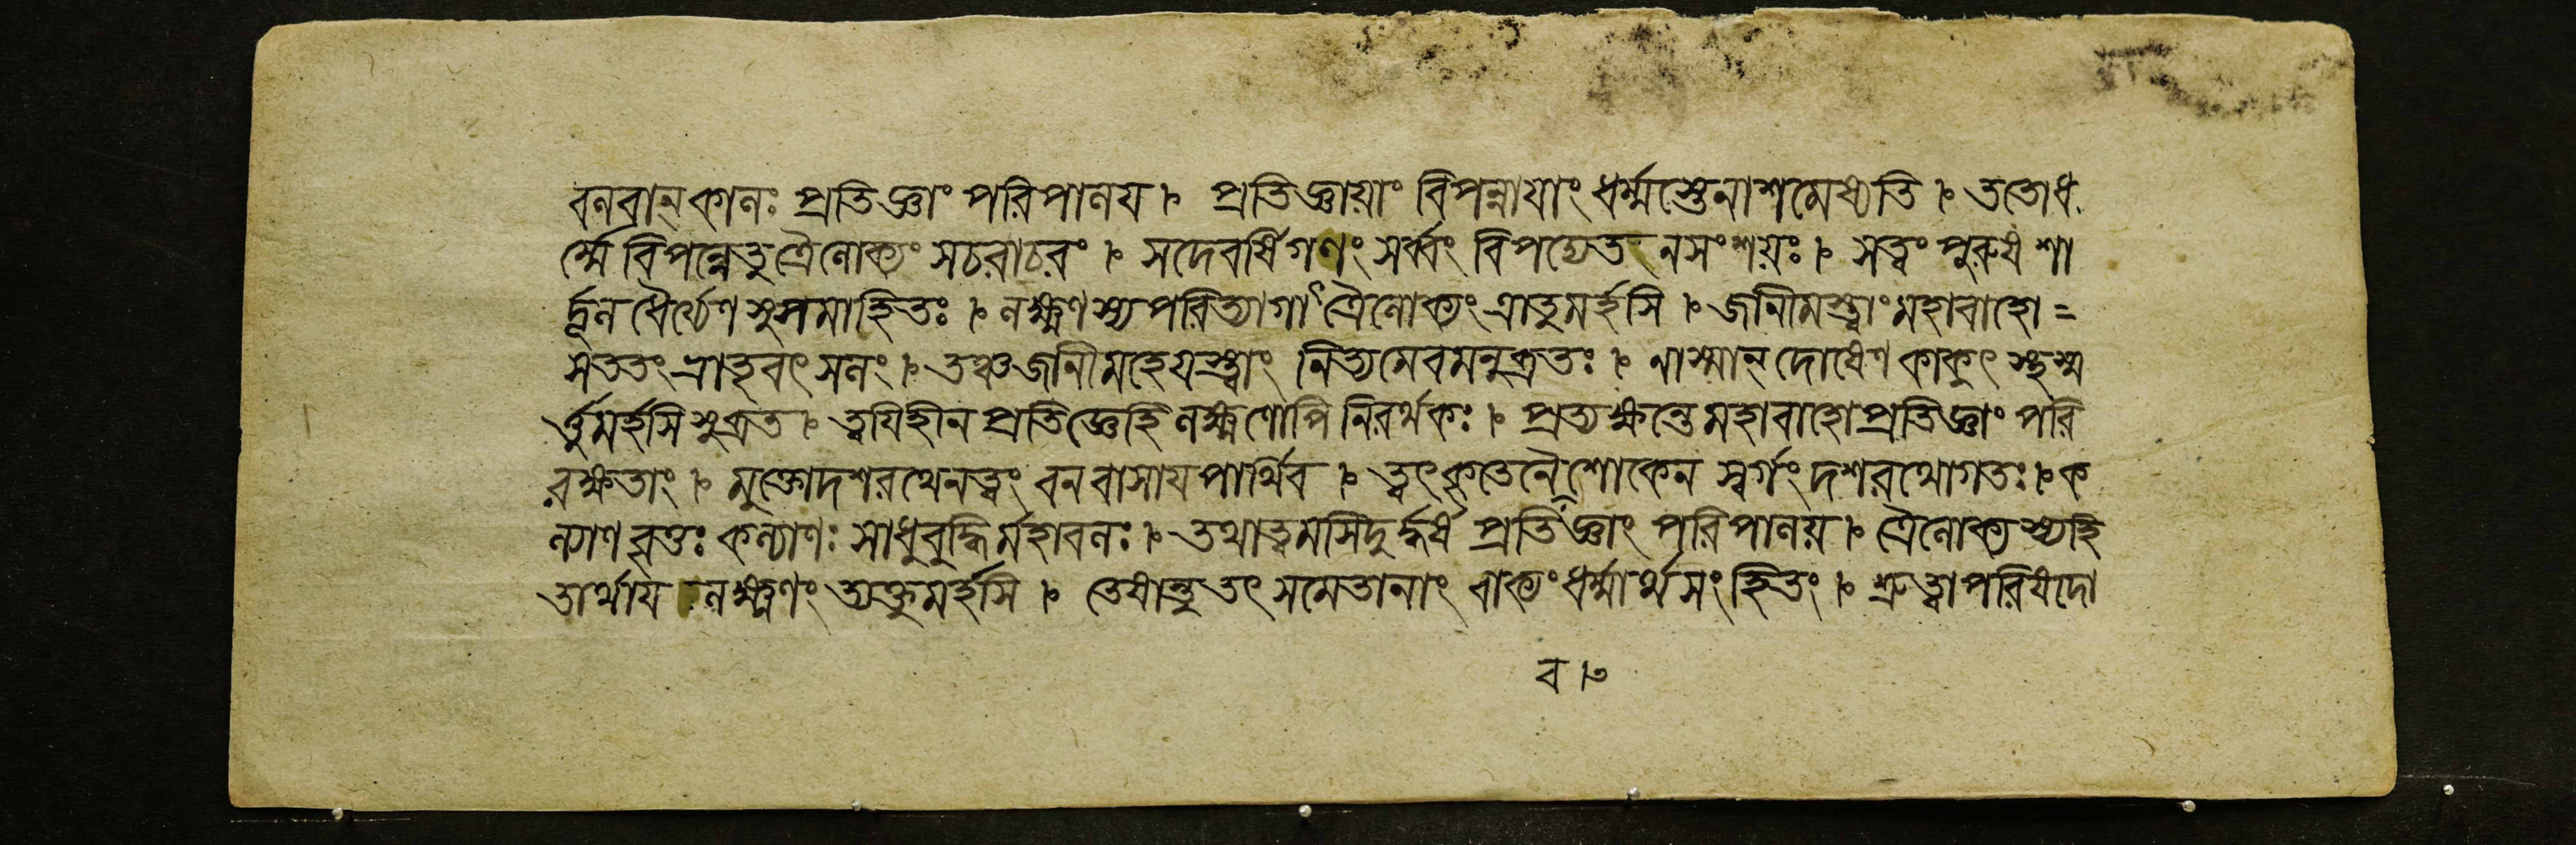 বলবান্ কালঃ প্রতিজ্ঞাং পরিপালয় । প্রতিজ্ঞায়াং বিপন্নায়াং ধর্ম্মস্তেনাশমেষ্যতি । ততোধ
র্ম্মে বিপন্নেতু ত্রৈলোক্যং সচরাচরং । সদেবর্ষিগণং সর্ব্বং বিপদ্যেত নসংশয়ঃ । সত্বং পুরুষ শা
র্দ্দূল ধৈর্য্যেণ সুসমাহিতঃ । লক্ষ্মণস্য পরিত্যাগাৎ ত্রৈলোক্যং ত্রাতুমর্হসি । জানীমস্ত্বাং মহাবাহো =
সততং ভ্রাতৃবৎসলং । তঞ্চ জানীমহেযস্ত্বাং নিত্যমেবমনুব্রতঃ । নাস্মান্ দোষেণ কাকুৎস্থস্ম
র্ত্তুমর্হসি সুব্রত । ত্বয়িহীন প্রতিজ্ঞেহি লক্ষ্মণোপি নিরর্থকঃ । প্রত্যক্ষন্তে মহাবাহো প্রতিজ্ঞাং পরি
রক্ষতাং । মুক্তোদশরথেনত্বং বনবাসায় পার্থিব । ত্বৎকৃতেনৈ শোকেন স্বর্গং দশরথোগতঃ । ক
ল্যাণবৃত্তঃ কল্যাণঃ সাধুবুদ্ধির্মহাবলঃ । তথাত্বমসিদুর্দ্ধর্ষ প্রতিজ্ঞাং পরিপালয় । ত্রৈলোক্যস্যহি
তার্থায় লক্ষ্মণং ত্যক্তুমর্হসি । তেষান্তুতৎ সমেতানাং বাক্যং ধর্ম্মার্থসংহিতং । শ্রুত্বাপরিষদো
ব ।